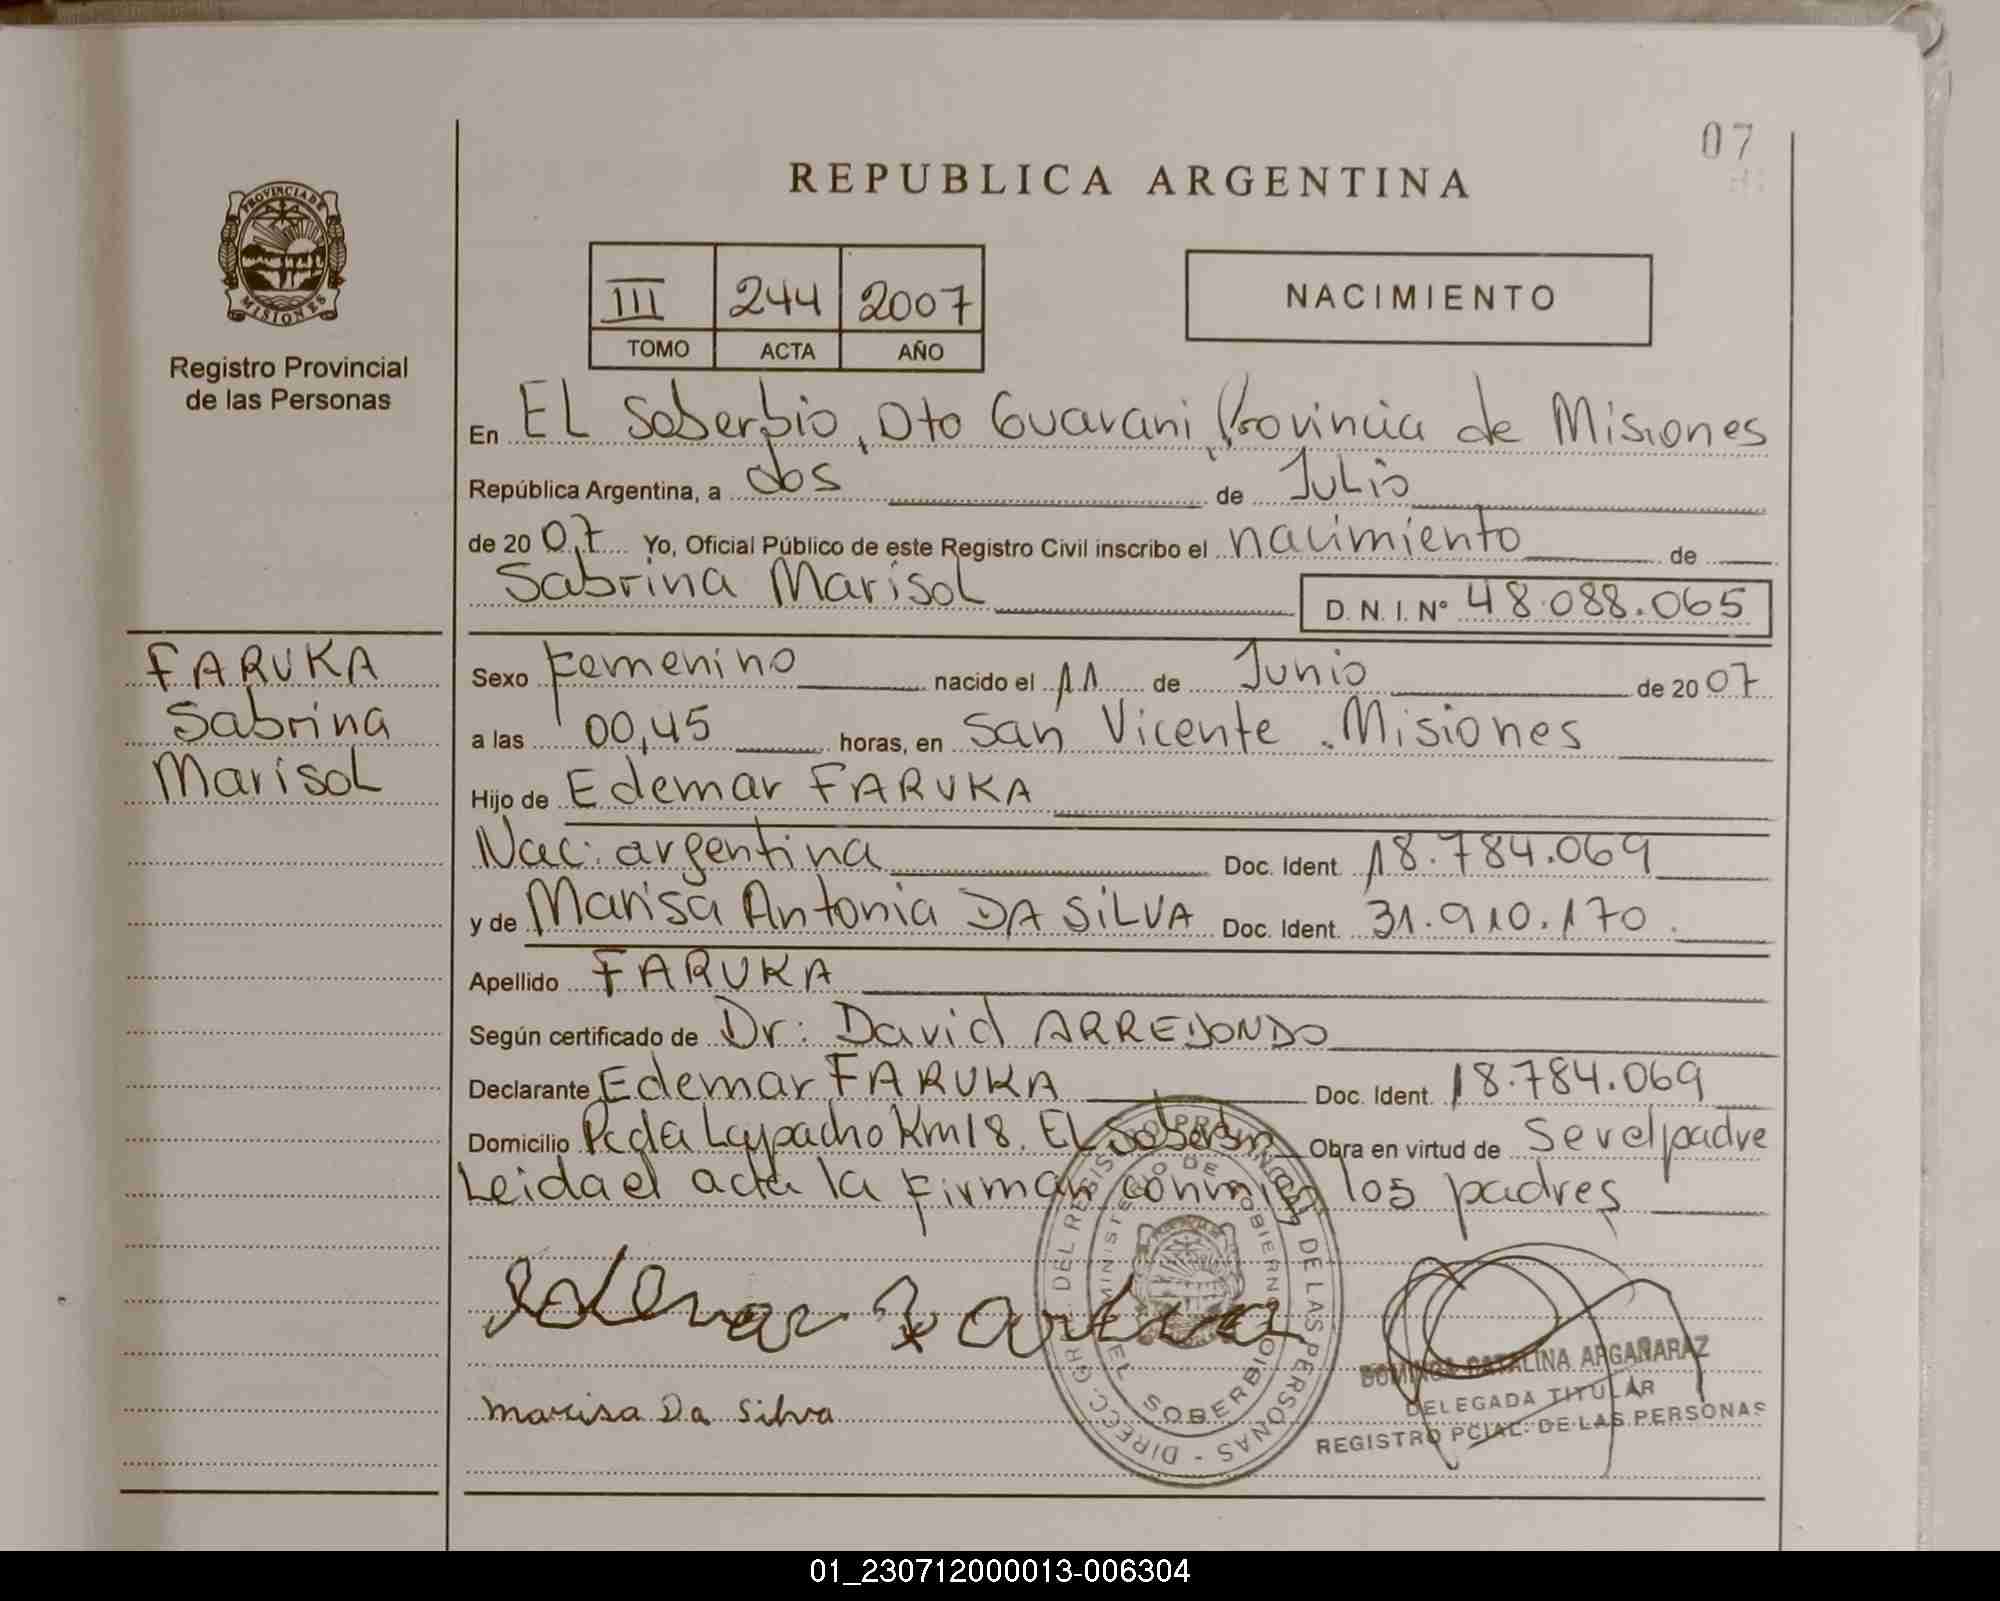 07
REPUBLICA ARGENTINA
PROVINCIA DE MISIONES
Registro Provincial
de las Personas
III 244 2007
TOMO ACTA AÑO
NACIMIENTO
En EL Soberbio, Dto Guarani Provincia de Misiones
República Argentina, a dos de Julio
de 2007 Yo, Oficial Público de este Registro Civil inscribo el nacimiento de
Sabrina Marisol D. N. I. Nº 48.088.065
FARUKA
Sabrina
Marisol
Sexo Femenino nacido el 11 de Junio de 2007
a las 00,45 horas, en San Vicente . Misiones
Hijo de Edemar FARUKA
Nac: argentina Doc. Ident. 18.784.069
y de Marisa Antonia DA SILVA Doc. Ident. 31.910.170.
Apellido FARUKA
Según certificado de Dr: David ARREDONDO
Declarante Edemar FARUKA Doc. Ident. 18.784.069
Domicilio Pcda Lapacho Km18. EL Soberbio Obra en virtud de Ser el padre
Leida el acta la Firman conmigo los padres
Edemar Faruka
Marisa Da Silva
DIRECC. GRAL. DEL REGISTRO PROVINCIAL DE LAS PERSONAS -
MINISTERIO DE GOBIERNO
EL SOBERBIO
DOMINGA CATALINA ARGAÑARAZ
DELEGADA TITULAR
REGISTRO PCIAL. DE LAS PERSONAS
01_230712000013-006304